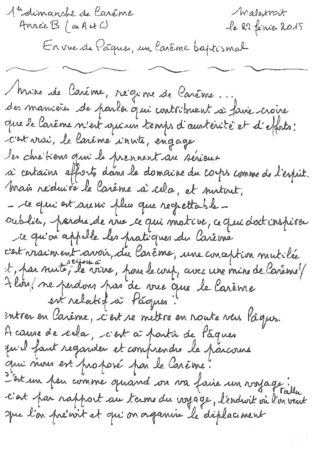 1er dimanche de Carême
Malestroit
Année B (ou A et C)
le 22 février 2015
En vue de Pâques, un Carême baptismal
Mine de Carême, régime de Carême...
des manières de parler qui contribuent à faire croire
que le Carême n'est qu'un temps d'austérité et d'efforts:
c'est vrai, le Carême invite, engage
les chrétiens qui le prennent au sérieux
à certains efforts dans le domaine du corps comme de l'esprit.
Mais réduire le Carême à cela, et surtout,
- ce qui est aussi plus que regrettable -
oublier, perdre de vue ce qui motive, ce qui doit inspirer
ce qu'on appelle les pratiques du Carême
c'est vraiment avoir, du Carême, une conception mutilée
et, par suite, le vivre, pour le coup, avec une mine de Carême!
Alors, ne perdons pas de vue que le Carême
est relatif à Pâques:
entrer en Carême, c'est se mettre en route vers Pâques.
A cause de cela, c'est à partir de Pâques
qu'il faut regarder et comprendre le parcours
qui nous est proposé par le Carême:
c'est un peu comme quand on va faire un voyage:
c'est par rapport au terme du voyage, l'endroit où l'on veut aller
que l'on prévoit et qu'on organise le déplacement